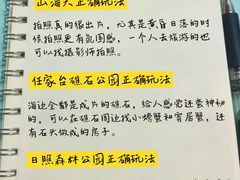 山海天正确玩法
拍照真的很出片，尤其是黄昏日落的时
候拍照更有氛围感，一个人去旅游的也
可以找摄影师拍照。
任家台礁石公园正确玩法
海边全都是成片的礁石，给人感觉还蛮神秘
的，可以在礁石周边找小螃蟹和寄居蟹，还
有石头做成的房子。
日照森林公园正确玩法